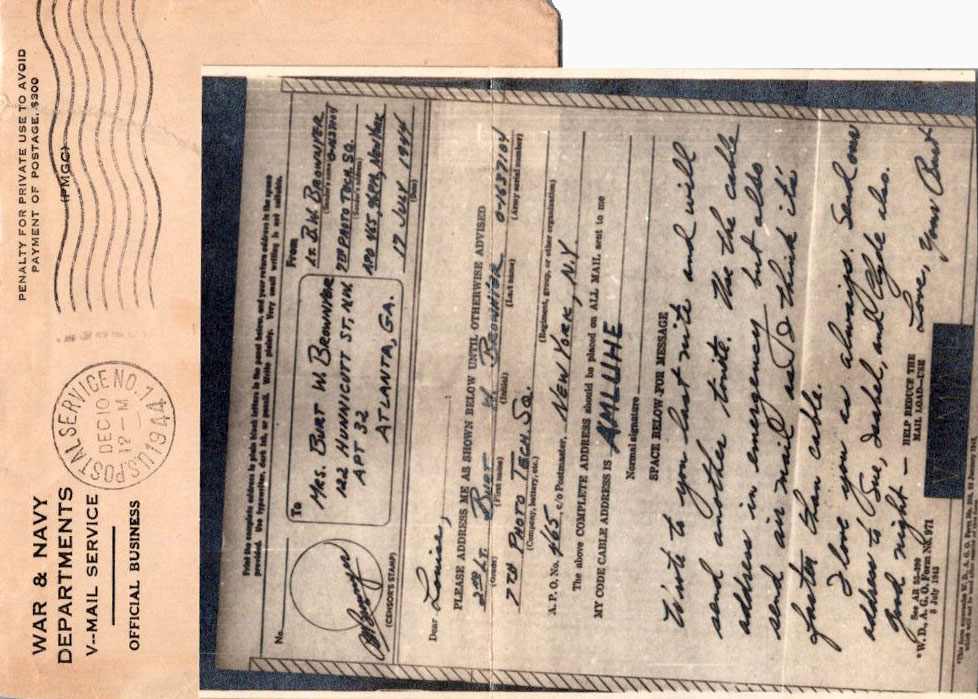 WAR & NAVY
DEPARTMENTS
V--MAIL SERVICE
OFFICIAL BUSINESS
U.S. POSTAL SERVICE NO. 1
DEC 10
12-M
1944
PENALTY FOR PRIVATE USE TO AVOID
PAYMENT OF POSTAGE, $300
(PMGC)
Print the complete address in plain block letters in the panel below, and your return address in the space
provided. Use typewriter, dark ink, or pencil. Write plainly. Very small writing is not suitable.
No.
(CENSOR'S STAMP)
To
MRS. BURT W. BROWNYER
122 HUNNICUTT ST, N.W.
APT 32
ATLANTA, GA.
From
Lt. B.W. BROWNYER
(Sender's name)
7TH PHOTO TECH. SQ.
(Sender's address)
APO 465, % PM, New York
17 July 1944
(Date)
Dear Louise,
PLEASE ADDRESS ME AS SHOWN BELOW UNTIL OTHERWISE ADVISED
2nd Lt. BURT W. BROWNYER 0-1637104
(Grade) (First name) (Initial) (Last name) (Army serial number)
7TH PHOTO TECH SQ.
(Company, battery, etc.) (Regiment, group, or other organization)
A. P. O. No. 465, c/o Postmaster, NEW YORK, NY.
The above COMPLETE ADDRESS should be placed on ALL MAIL sent to me
MY CODE CABLE ADDRESS IS AMLUHE
Normal signature
SPACE BELOW FOR MESSAGE
Wrote to you last nite and will
send another tonite. Use the cable
address in emergency but also
send air mail as I think it's
faster than cable.
I love you as always. Send our
address to Sue, Isabel, and Clyde also.
Good night — Love,
Your Burt
See AR
W. D., A. G. O. Form No. 971
8 July 1943
HELP REDUCE THE
MAIL LOAD—USE
V-MAIL